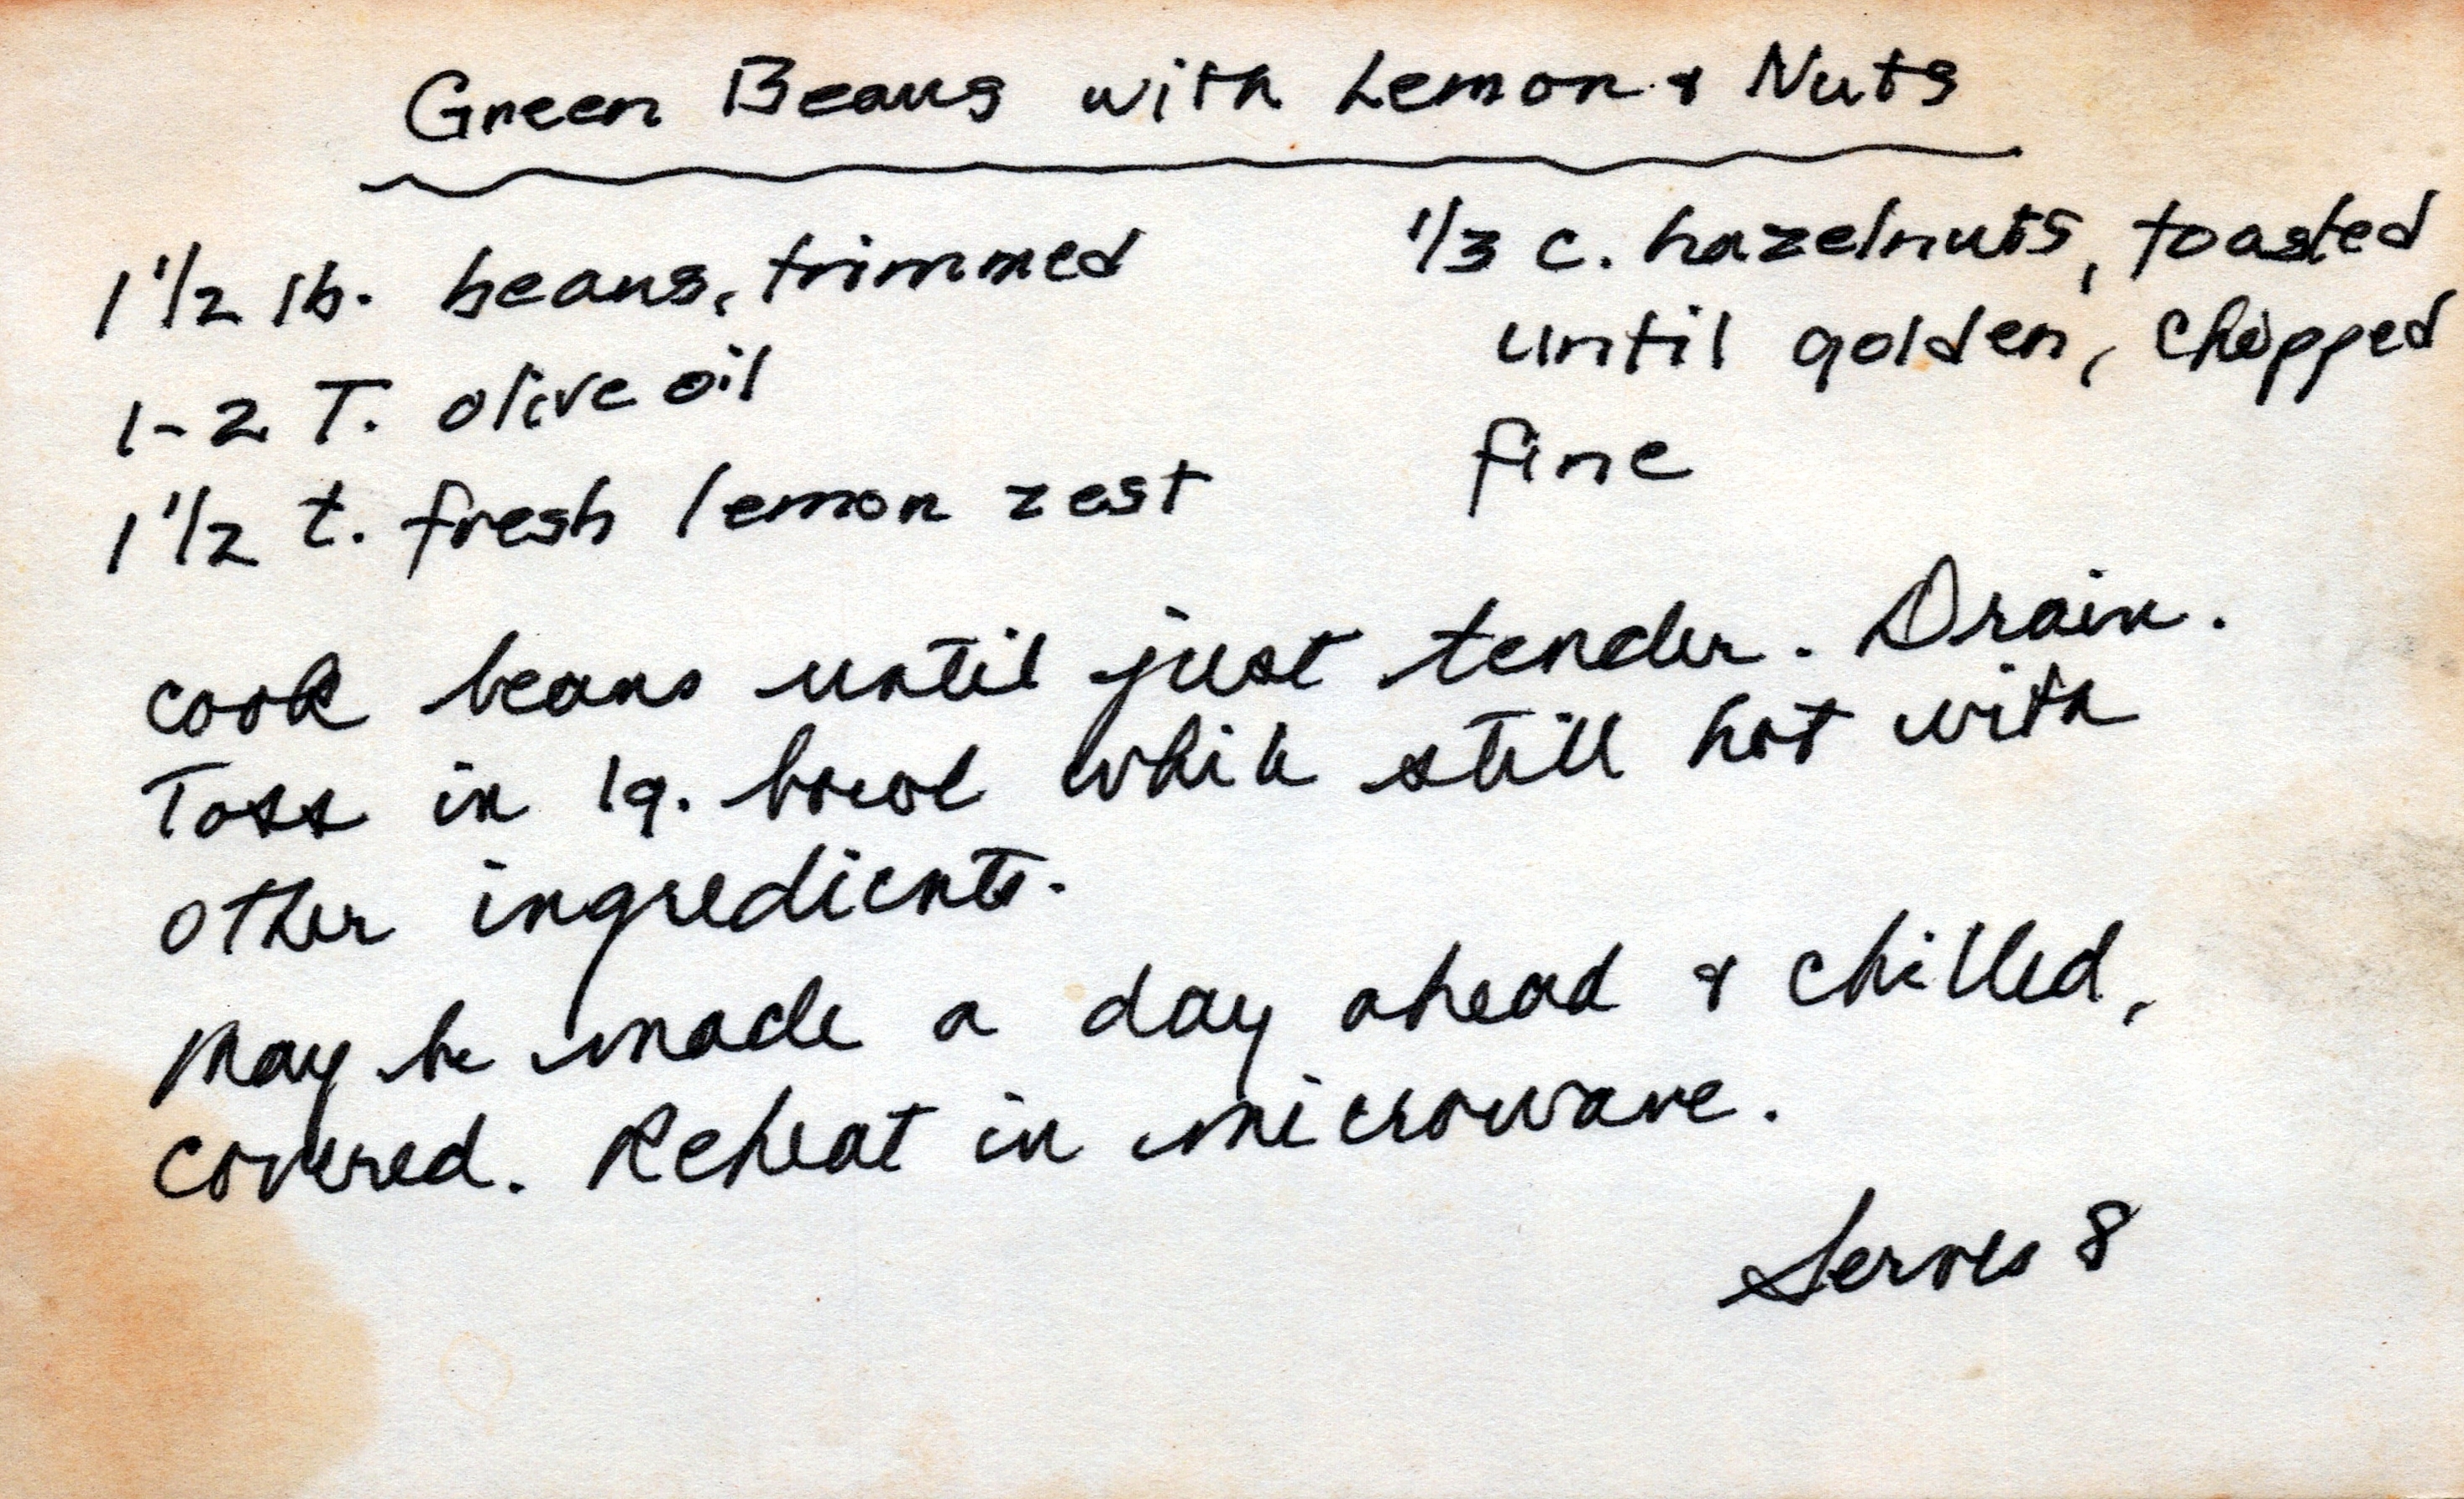 Green Beans with Lemon & Nuts
1 1/2 lb. beans, trimmed
1-2 T. olive oil
1 1/2 t. fresh lemon zest
1/3 c. hazelnuts, toasted
until golden, chopped
fine
Cook beans until just tender. Drain.
Toss in lg. bowl while still hot with
other ingredients.
May be made a day ahead & chilled,
covered. Reheat in microwave.
Serves 8